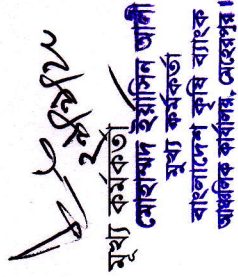 মূখ্য কর্মকর্তা
মোহাম্মদ ইয়াসিন আলী
মূখ্য কর্মকর্তা
বাংলাদেশ কৃষি ব্যাংক
আঞ্চলিক কার্যালয়, মেহেরপুর।